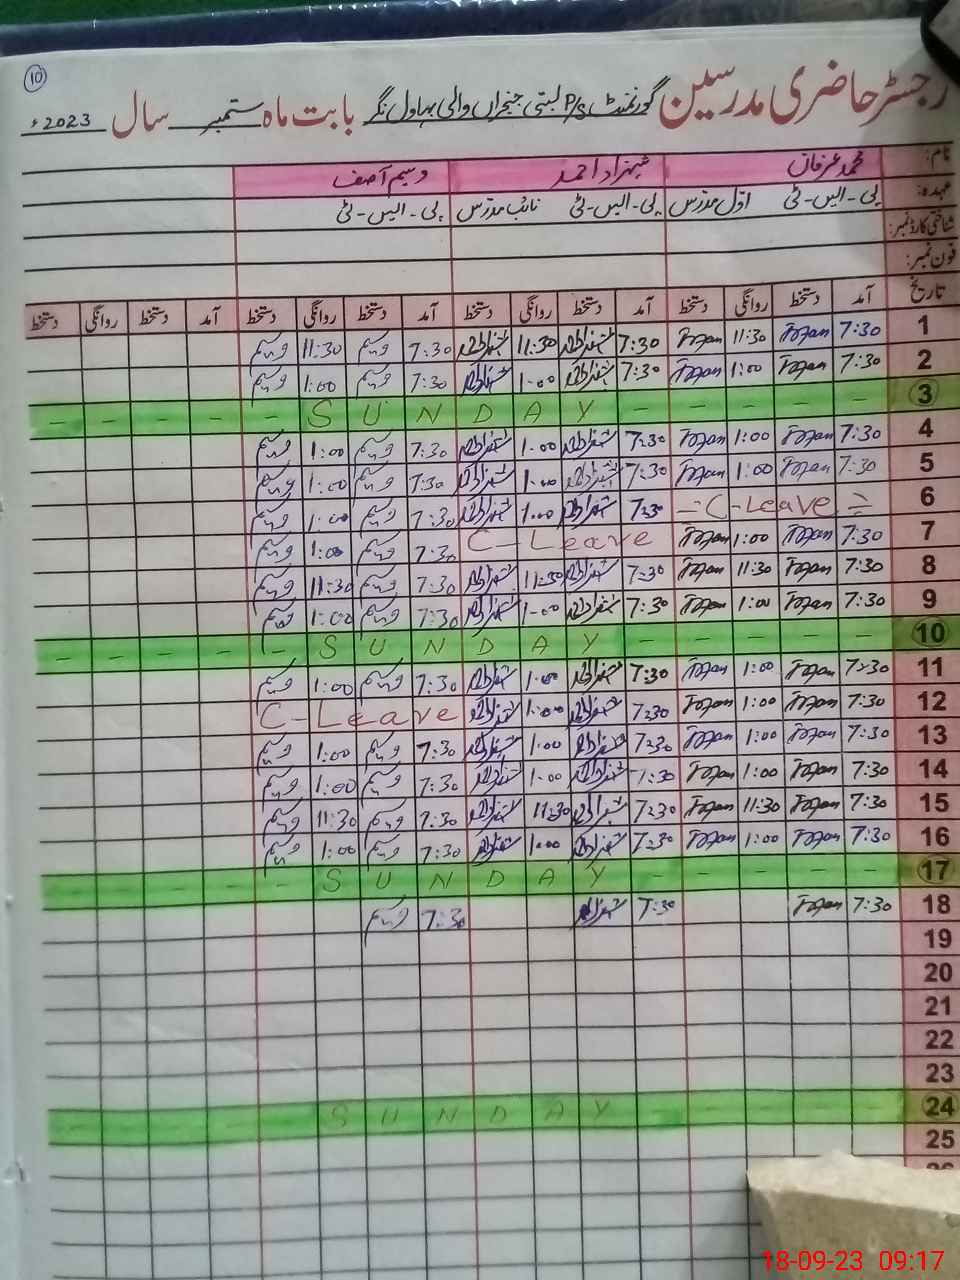 10
رجسٹر حاضری مدرسین گورنمنٹ P/S بستی جنجراں والی بہاول نگر بابت ماہ ستمبر سال 2023ء
نام: محمد عرفان شہزاد احمد وسیم آصف
عہدہ: پی-ایس-ٹی اوّل مدرس پی-ایس-ٹی نائب مدرس پی-ایس-ٹی
شناختی کارڈ نمبر:
فون نمبر:
تاریخ آمد دستخط روانگی دستخط آمد دستخط روانگی دستخط آمد دستخط روانگی دستخط آمد دستخط روانگی دستخط
1 7:30 11:30 7:30 شہزاد احمد 11:30 شہزاد احمد 7:30 وسیم 11:30 وسیم
2 7:30 1:00 7:30 شہزاد احمد 1:00 شہزاد احمد 7:30 وسیم 1:00 وسیم
3 - - - - SUNDAY - - - - -
4 7:30 1:00 7:30 شہزاد احمد 1:00 شہزاد احمد 7:30 وسیم 1:00 وسیم
5 7:30 1:00 7:30 شہزاد احمد 1:00 شہزاد احمد 7:30 وسیم 1:00 وسیم
6 C-Leave 7:30 شہزاد احمد 1:00 شہزاد احمد 7:30 وسیم 1:00 وسیم
7 7:30 1:00 C-Leave 7:30 وسیم 1:00 وسیم
8 7:30 11:30 7:30 شہزاد احمد 11:30 شہزاد احمد 7:30 وسیم 11:30 وسیم
9 7:30 1:00 7:30 شہزاد احمد 1:00 شہزاد احمد 7:30 وسیم 1:00 وسیم
10 - - - - SUNDAY - - - - -
11 7:30 1:00 7:30 شہزاد احمد 1:00 شہزاد احمد 7:30 وسیم 1:00 وسیم
12 7:30 1:00 7:30 شہزاد احمد 1:00 شہزاد احمد C-Leave
13 7:30 1:00 7:30 شہزاد احمد 1:00 شہزاد احمد 7:30 وسیم 1:00 وسیم
14 7:30 1:00 7:30 شہزاد احمد 1:00 شہزاد احمد 7:30 وسیم 1:00 وسیم
15 7:30 11:30 7:30 شہزاد احمد 11:30 شہزاد احمد 7:30 وسیم 11:30 وسیم
16 7:30 1:00 7:30 شہزاد احمد 1:00 شہزاد احمد 7:30 وسیم 1:00 وسیم
17 - - - - SUNDAY - - - - -
18 7:30 7:30 شہزاد احمد 7:30 وسیم
19
20
21
22
23
24 - - - - SUNDAY - - - - -
25
18-09-23 09:17